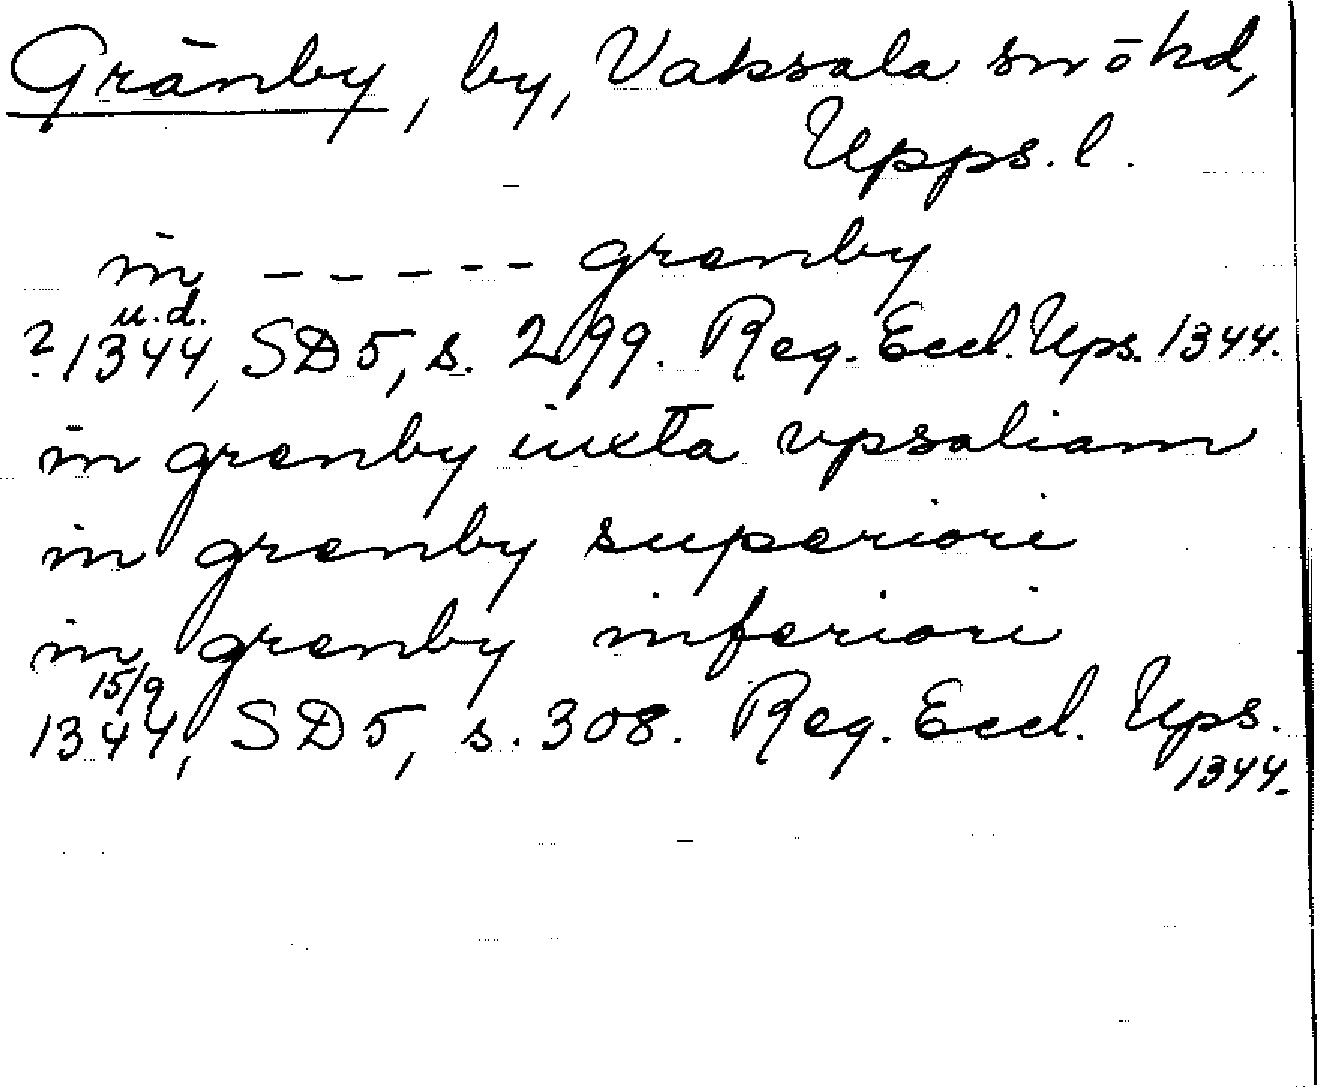 Gränby, by, Vaksala sn ō hd,
Upps. l.
in - - - - - grenby
u.d.
? 1344, SD 5, s. 299. Reg. Eccl. Ups. 1344.
in grenby iuxta vpsaliam
in grenby superiori
in grenby inferiori
15/9
1344, SD 5, s. 308. Reg. Eccl. Ups.
1344.